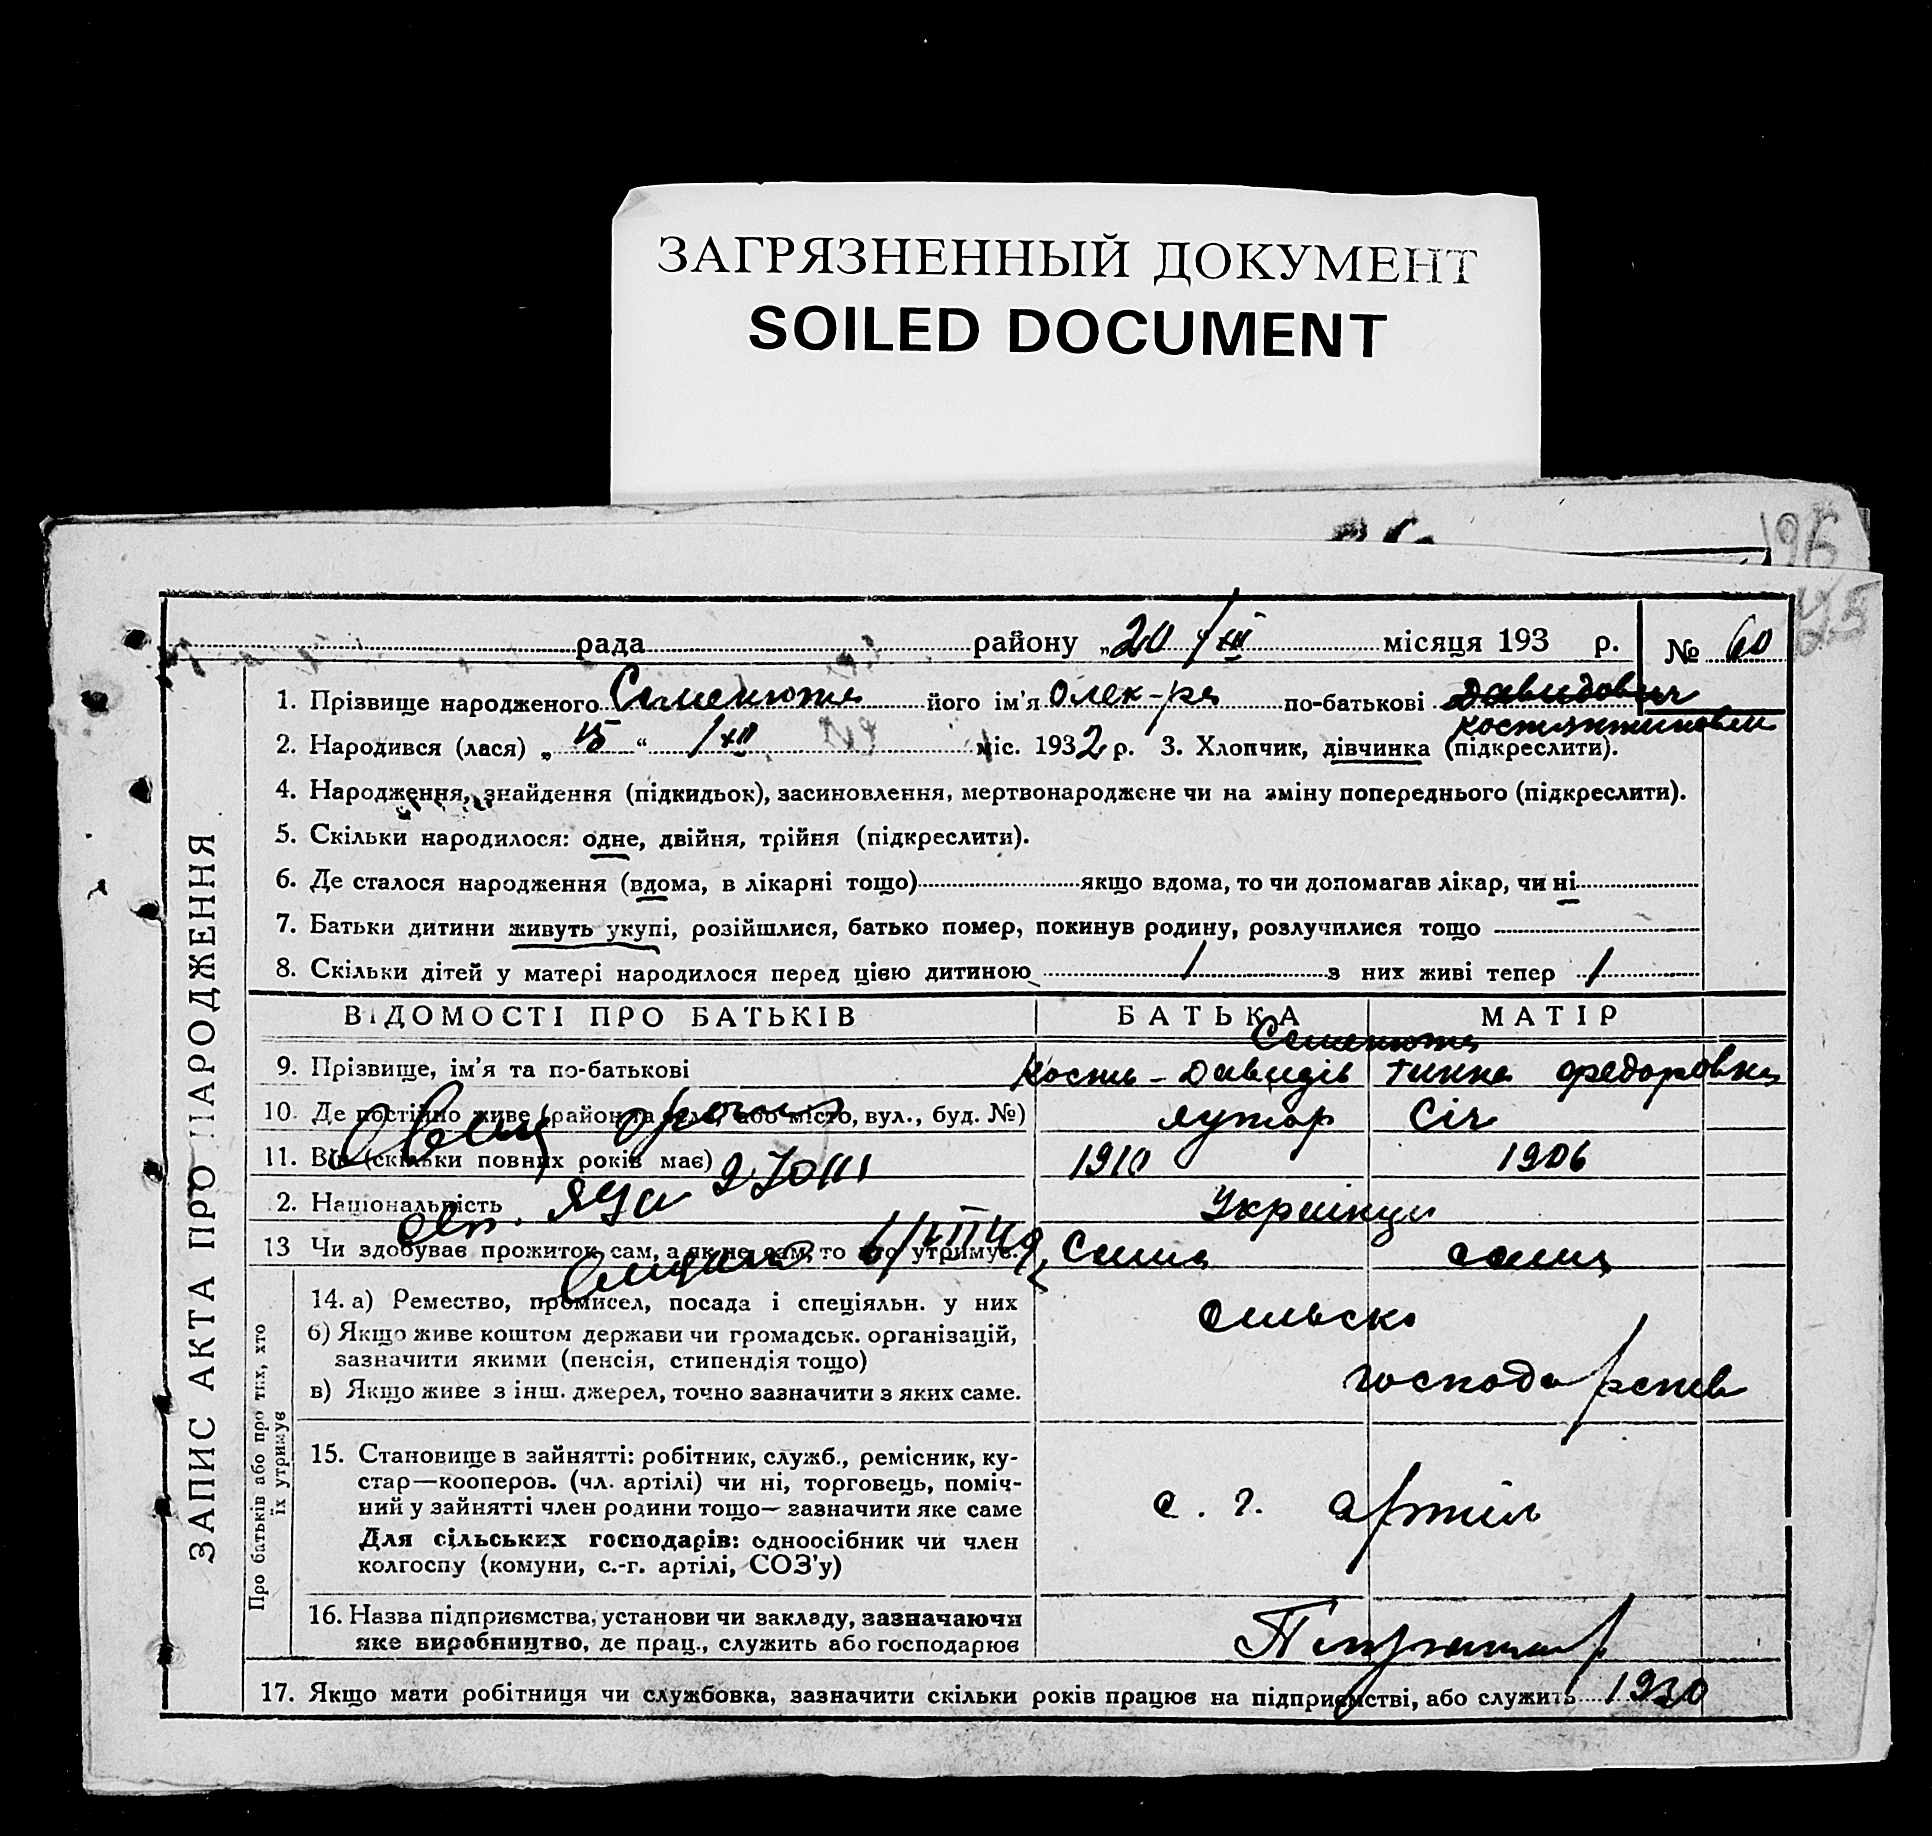 ЗАГРЯЗНЕННЫЙ ДОКУМЕНТ
SOILED DOCUMENT
196
ЗАПИС АКТА ПРО НАРОДЖЕННЯ
рада района „20 / XII місяця 193 р. № 60
1. Прізвище народженого Семенюта його ім'я Олек-ра по-батькові Давидович
Костянтиновна
2. Народився (лася) „15“ / XII міс. 1932 р. 3. Хлопчик, дівчинка (підкреслити).
4. Народження, знайдення (підкидьок), засиновлення, мертвонароджене чи на зміну попереднього (підкреслити).
5. Скільки народилося: одне, двійня, трійня (підкреслити).
6. Де сталося народження (вдома, в лікарні тощо) якщо вдома, то чи допомагав лікар, чи ні
7. Батьки дитини живуть укупі, розійшлися, батько помер, покинув родину, розлучилися тощо
8. Скільки дітей у матері народилося перед цією дитиною 1 з них живі тепер 1
ВІДОМОСТІ ПРО БАТЬКІВ БАТЬКА МАТІР
Семенюта
9. Прізвище, ім'я та по-батькові Кость - Давидів Тинна Федоровна
10. Де постійно живе (район та село, або місто, вул., буд. №) хутор Січ
11. Вік (скільки повних років має) 1910 1906
2. Національність Українци
13 Чи здобуває прожиток сам, а як не сам, то хто утримує. Сама сама
Про батьків або про тих, хто їх утримує
14. а) Ремество, промисел, посада і спеціяльн. у них сільско
б) Якщо живе коштом держави чи громадськ. організацій,
зазначити якими (пенсія, стипендія тощо)
в) Якщо живе з інш. джерел, точно зазначити з яких саме. господарств
15. Становище в зайнятті: робітник, служб., ремісник, ку-
стар—кооперов. (чл. артілі) чи ні, торговець, поміч-
ний у зайнятті член родини тощо— зазначити яке саме
с. г. артіль
Для сільських господарів: одноосібник чи член
колгоспу (комуни, с.-г. артілі, СОЗ'у)
16. Назва підприємства, установи чи закладу, зазначаючи
яке виробництво, де прац., служить або господарює
17. Якщо мати робітниця чи службовка, зазначити скільки років працює на підприємстві, або служить 1930